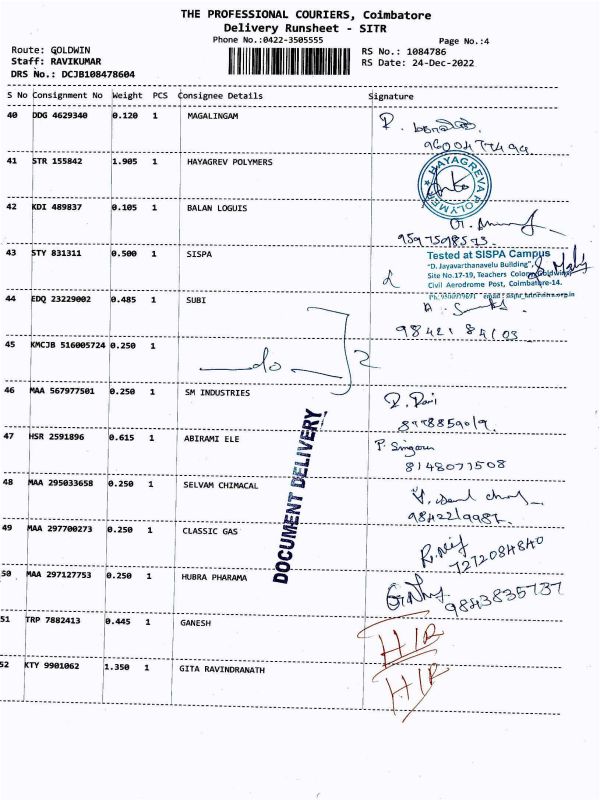 THE PROFESSIONAL COURIERS, Coimbatore
Delivery Runsheet - SITR
Phone No.:0422-3505555
Page No.:4
Route: GOLDWIN
RS No.: 1084786
Staff: RAVIKUMAR
RS Date: 24-Dec-2022
DRS No.: DCJB108478604
S No Consignment No Weight PCS Consignee Details Signature
40 DDG 4629340 0.120 1 MAGALINGAM
41 STR 155842 1.905 1 HAYAGREV POLYMERS
HAYAGREVA POLYMER
42 KDI 489837 0.105 1 BALAN LOGUIS
43 STY 831311 0.500 1 SISPA
Tested at SISPA Campus
"D. Jayavarthanavelu Building",
Site No.17-19, Teachers Colony, Goldwins,
Civil Aerodrome Post, Coimbatore-14.
44 EDQ 23229002 0.485 1 SUBI
98421 84103
45 KMCJB 516005724 0.250 1
do
46 MAA 567977501 0.250 1 SM INDUSTRIES
47 HSR 2591896 0.615 1 ABIRAMI ELE
8148071508
48 MAA 295033658 0.250 1 SELVAM CHIMACAL
49 MAA 297700273 0.250 1 CLASSIC GAS
7272084840
50 MAA 297127753 0.250 1 HUBRA PHARAMA
9843835737
DOCUMENT DELIVERY
51 TRP 7882413 0.445 1 GANESH
H/R
52 KTY 9901062 1.350 1 GITA RAVINDRANATH
H/R